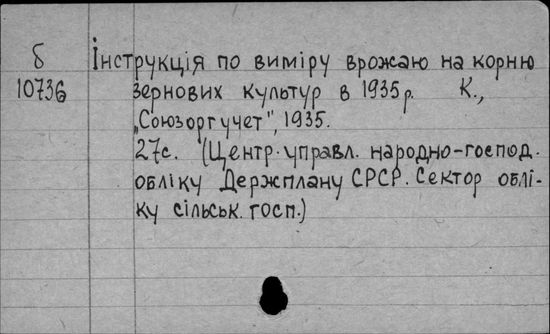 б
10736
Інструкція по виміру врожаю на корню
зернових культур в 1935 р. К.,
„Союзоргучет", 1935.
27с. (Центр. управл. народно-господ.
обліку Держплану СРСР. Сектор облі-
ку сільськ. госп.)